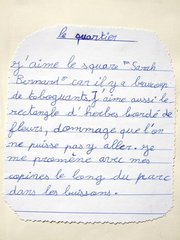 le quartier
j'aime le square "Sarah
Bernard" car il y a beaucoup
de toboguants. J'aime aussi le
rectangle d'herbes bordé de
fleurs, dommage que l'on
ne puisse pas y aller. je
me promène avec mes
copines le long du parc
dans les buissons.